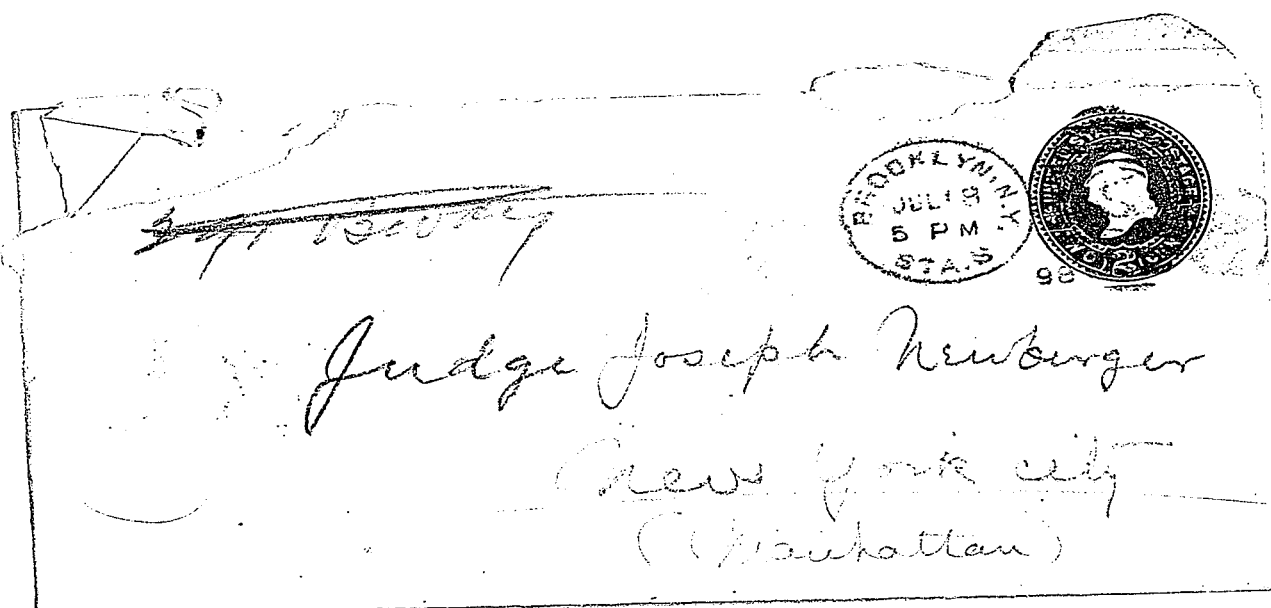 BROOKLYN, N.Y.
JUL 18
5 PM
STA. S
98
Judge Joseph Newburger
New York city
(Manhattan)